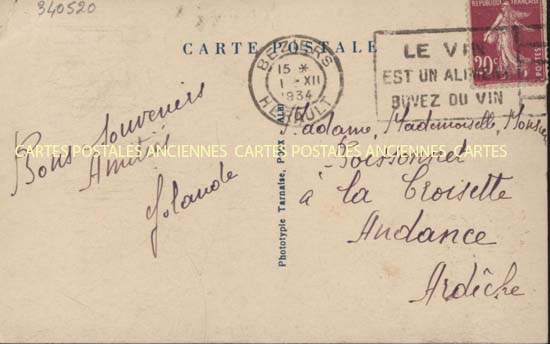 340520
CARTE POSTALE
BEZIERS
15 *
1 - XII
1934
HERAULT
REPUBLIQUE FRANÇAISE
20c
POSTES
LE VIN
EST UN ALIMENT
BUVEZ DU VIN
Bons Souvenirs
Amitiés
Yolande
Phototypie Tarnaise, POUX Albi
Madame, Mademoiselle, Monsieur
CARTES POSTALES ANCIENNES CARTES POSTALES ANCIENNES CARTES
Poissonnet
à la Croisette
Andance
Ardèche